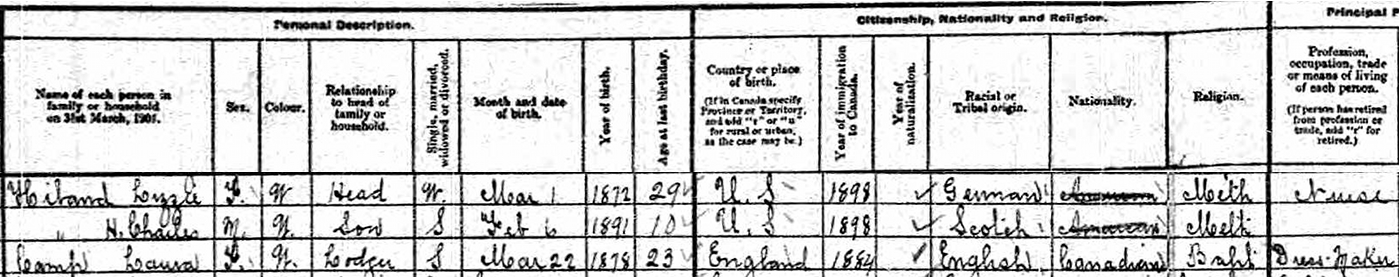 Personal Description.
Citizenship, Nationality and Religion.
Principal P
Name of each person in family or household on 31st March, 1901.
Sex.
Colour.
Relationship to head of family or household.
Single, married, widowed or divorced.
Month and date of birth.
Year of birth.
Age at last birthday.
Country or place of birth. (If in Canada specify Province or Territory, and add "r" or "u" for rural or urban, as the case may be.)
Year of immigration to Canada.
Year of naturalization.
Racial or Tribal origin.
Nationality.
Religion.
Profession, occupation, trade or means of living of each person. (If person has retired from profession or trade, add "r" for retired.)
Hiband Lyzzie F. W Head W. Mar 1 1872 29 U. S 1898 German American Meth Nurse
" H. Charles M. W. Son S Feb 6 1891 10 U. S 1898 Scotch American Meth
Camp Laura F. W. Lodger S Mar 22 1878 23 England 1884 English Canadian Bapt Dress-Maker